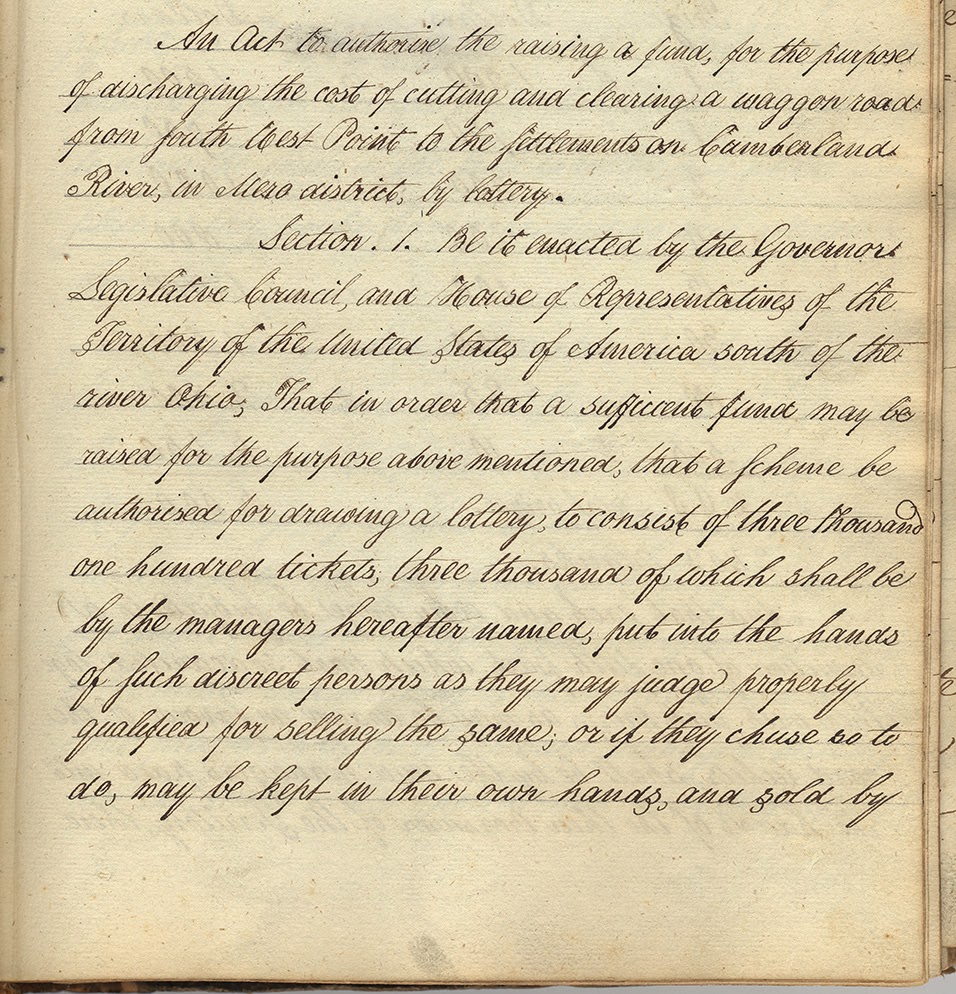 An Act to authorise the raising a fund, for the purpose
of discharging the cost of cutting and clearing a waggon road
from South West Point to the settlements on Cumberland
River, in Mero district, by lottery.
Section. 1. Be it enacted by the Governor
Legislative Council, and House of Representatives of the
Territory of the United States of America south of the
river Ohio, That in order that a sufficcent fund may be
raised for the purpose above mentioned, that a scheme be
authorised for drawing a lottery, to consist of three thousand
one hundred tickets, three thousand of which shall be
by the managers hereafter named, put into the hands
of such discreet persons as they may judge properly
qualified for selling the same; or if they chuse so to
do, may be kept in their own hands, and sold by